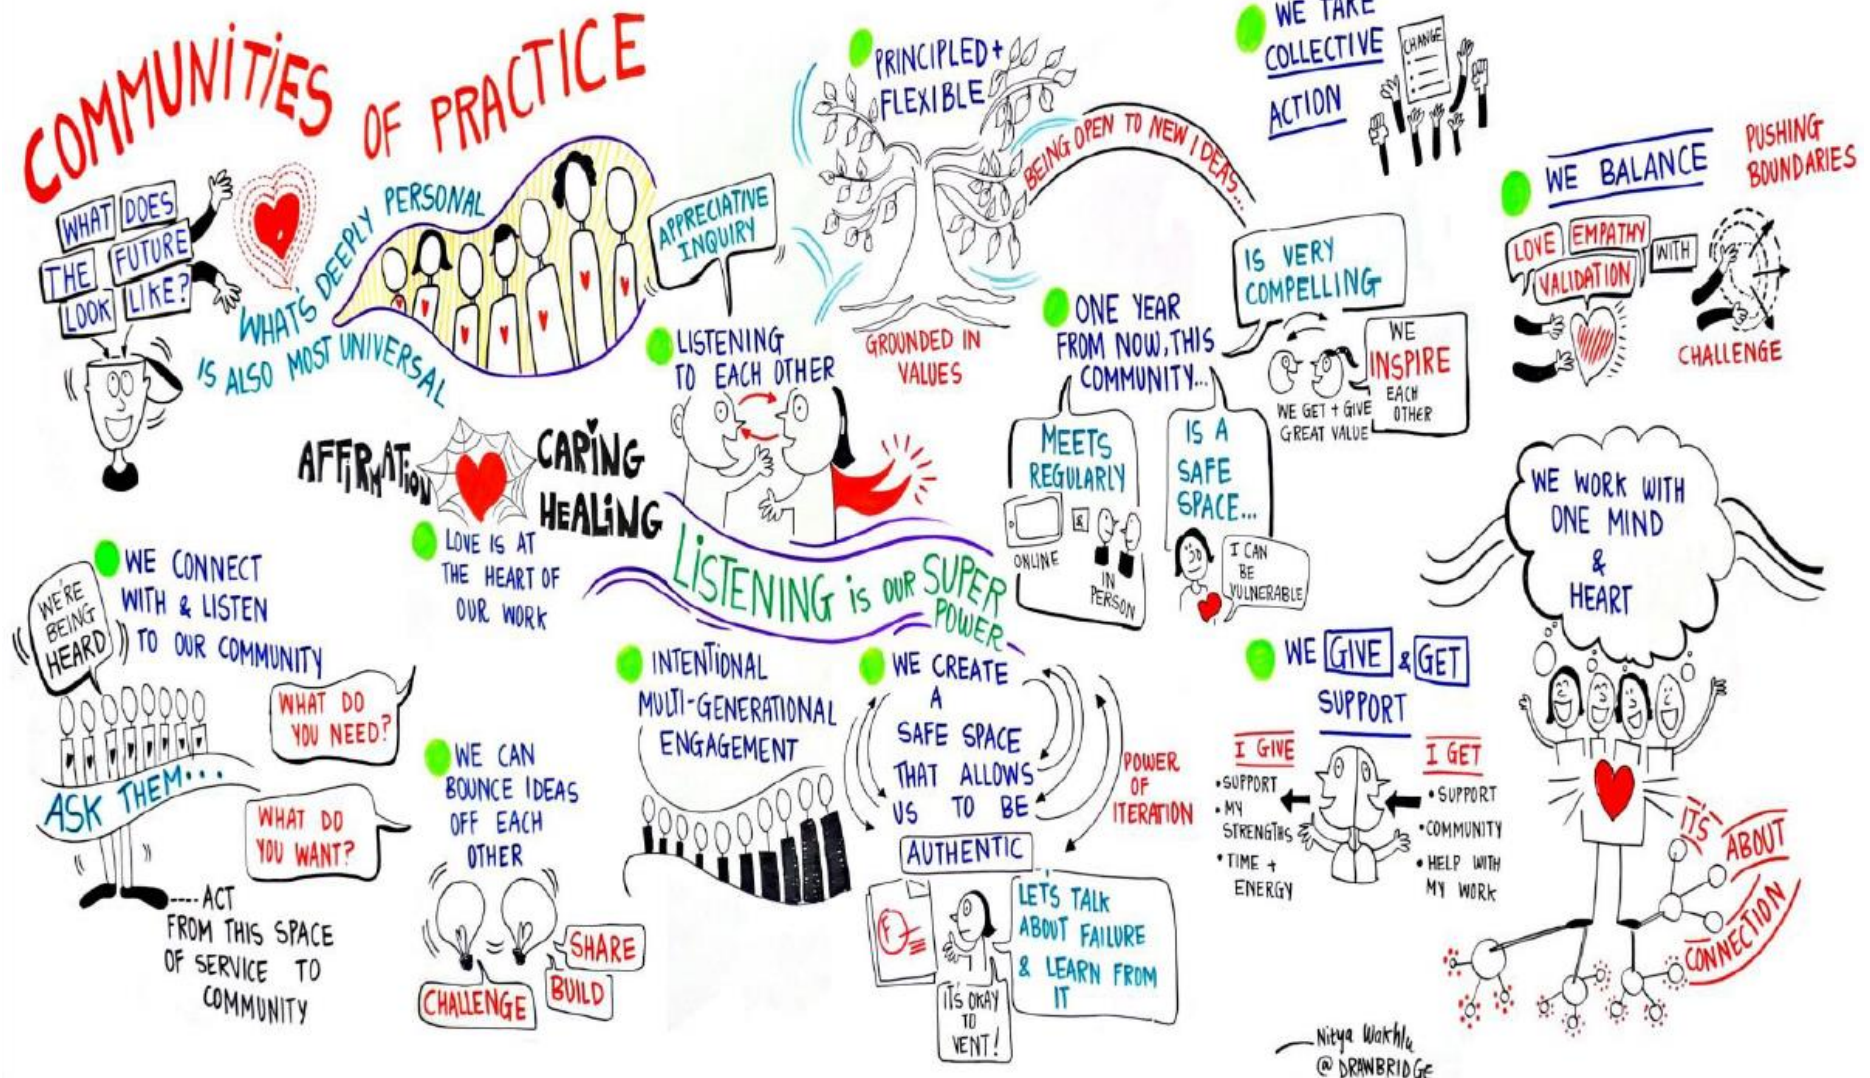 COMMUNITIES
OF PRACTICE
WHAT DOES
THE FUTURE
LOOK LIKE?
WHAT'S DEEPLY PERSONAL
IS ALSO MOST UNIVERSAL
APPRECIATIVE
INQUIRY
LISTENING
TO EACH OTHER
PRINCIPLED +
FLEXIBLE
GROUNDED IN
VALUES
BEING OPEN TO NEW IDEAS...
WE TAKE
COLLECTIVE
ACTION
CHANGE
WE BALANCE
PUSHING
BOUNDARIES
LOVE EMPATHY
VALIDATION
WITH
CHALLENGE
ONE YEAR
FROM NOW, THIS
COMMUNITY...
IS VERY
COMPELLING
WE
INSPIRE
EACH
OTHER
WE GET + GIVE
GREAT VALUE
MEETS
REGULARLY
ONLINE
&
IN
PERSON
IS A
SAFE
SPACE...
I CAN
BE
VULNERABLE
AFFIRMATION
CARING
HEALING
LOVE IS AT
THE HEART OF
OUR WORK
LISTENING is OUR SUPER
POWER
WE WORK WITH
ONE MIND
&
HEART
WE CONNECT
WITH & LISTEN
TO OUR COMMUNITY
WE'RE
BEING
HEARD
WHAT DO
YOU NEED?
ASK THEM...
WHAT DO
YOU WANT?
ACT
FROM THIS SPACE
OF SERVICE TO
COMMUNITY
WE CAN
BOUNCE IDEAS
OFF EACH
OTHER
SHARE
BUILD
CHALLENGE
INTENTIONAL
MULTI-GENERATIONAL
ENGAGEMENT
WE CREATE
A
SAFE SPACE
THAT ALLOWS
US TO BE
AUTHENTIC
POWER
OF
ITERATION
F
LET'S TALK
ABOUT FAILURE
& LEARN FROM
IT
IT'S OKAY
TO
VENT!
WE GIVE & GET
SUPPORT
I GIVE
• SUPPORT
• MY
STRENGTHS
• TIME +
ENERGY
I GET
• SUPPORT
• COMMUNITY
• HELP WITH
MY WORK
IT'S ABOUT
CONNECTION
Nitya Wakhlu
@ DRAWBRIDGE